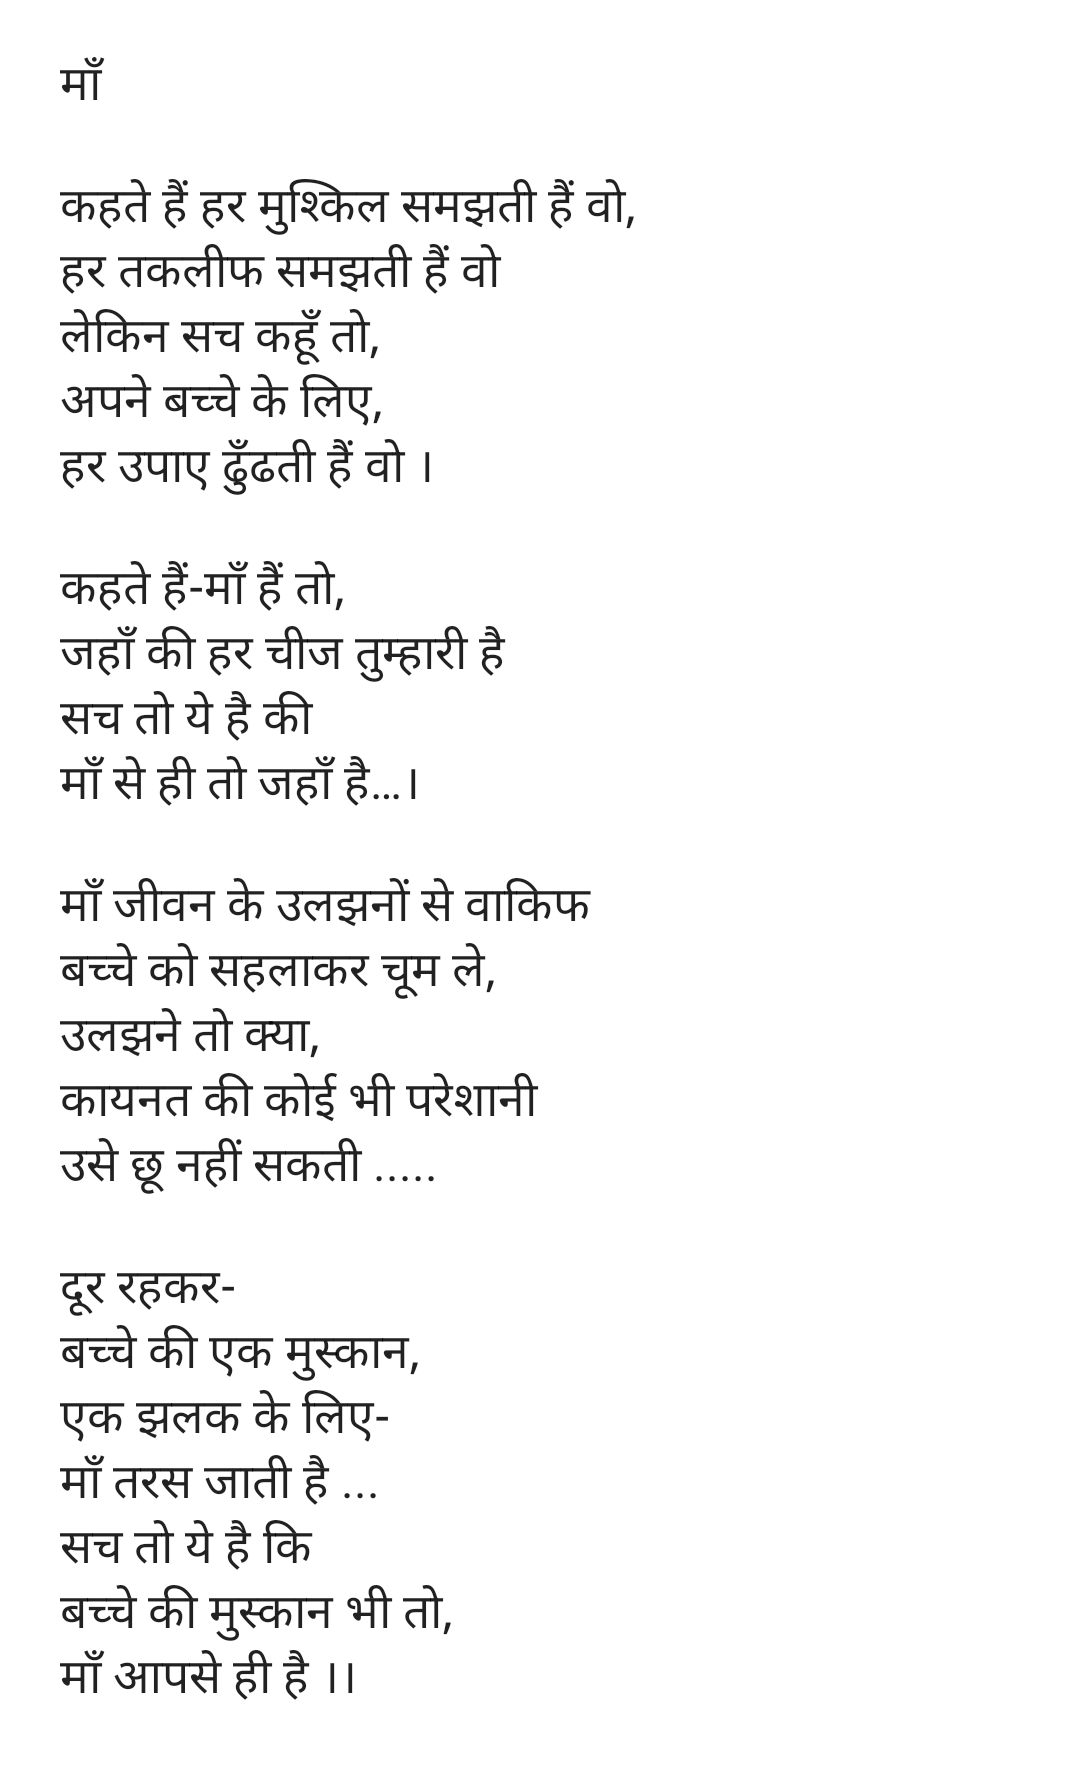 माँ
कहते हैं हर मुश्किल समझती हैं वो,
हर तकलीफ समझती हैं वो
लेकिन सच कहूँ तो,
अपने बच्चे के लिए,
हर उपाए ढुँढती हैं वो ।
कहते हैं-माँ हैं तो,
जहाँ की हर चीज तुम्हारी है
सच तो ये है की
माँ से ही तो जहाँ है...।
माँ जीवन के उलझनों से वाकिफ
बच्चे को सहलाकर चूम ले,
उलझने तो क्या,
कायनत की कोई भी परेशानी
उसे छू नहीं सकती .....
दूर रहकर-
बच्चे की एक मुस्कान,
एक झलक के लिए-
माँ तरस जाती है ...
सच तो ये है कि
बच्चे की मुस्कान भी तो,
माँ आपसे ही है ।।